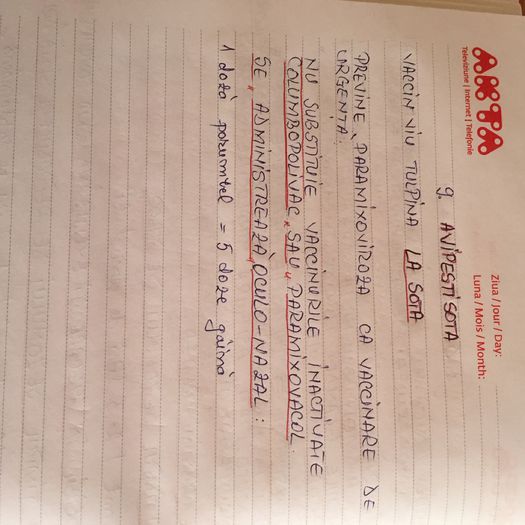 AKTA
Televiziune | Internet | Telefonie
Ziua / Jour / Day:
Luna / Mois / Month:
9. AVIPESTISOTA
VACCIN VIU TULPINA LA SOTA
PREVINE PARAMIXOVIROZA CA VACCINARE DE
URGENȚĂ.
NU SUBSTITUIE VACCINURILE INACTIVATE
COLUMBOPOLIVAC SAU PARAMIXOVACOL
SE ADMINISTREAZĂ OCULO-NAZAL:
1 doză porumbel = 5 doze găină